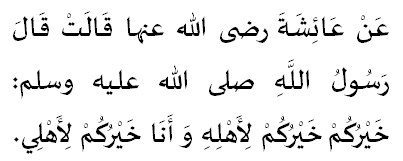 عَنْ عَائِشَةَ رضى الله عنها قَالَتْ قَالَ
رَسُولُ اللَّهِ صلى الله عليه وسلم:
خَيْرُكُمْ خَيْرُكُمْ لِأَهْلِهِ وَ أَنَا خَيْرُكُمْ لِأَهْلِي.